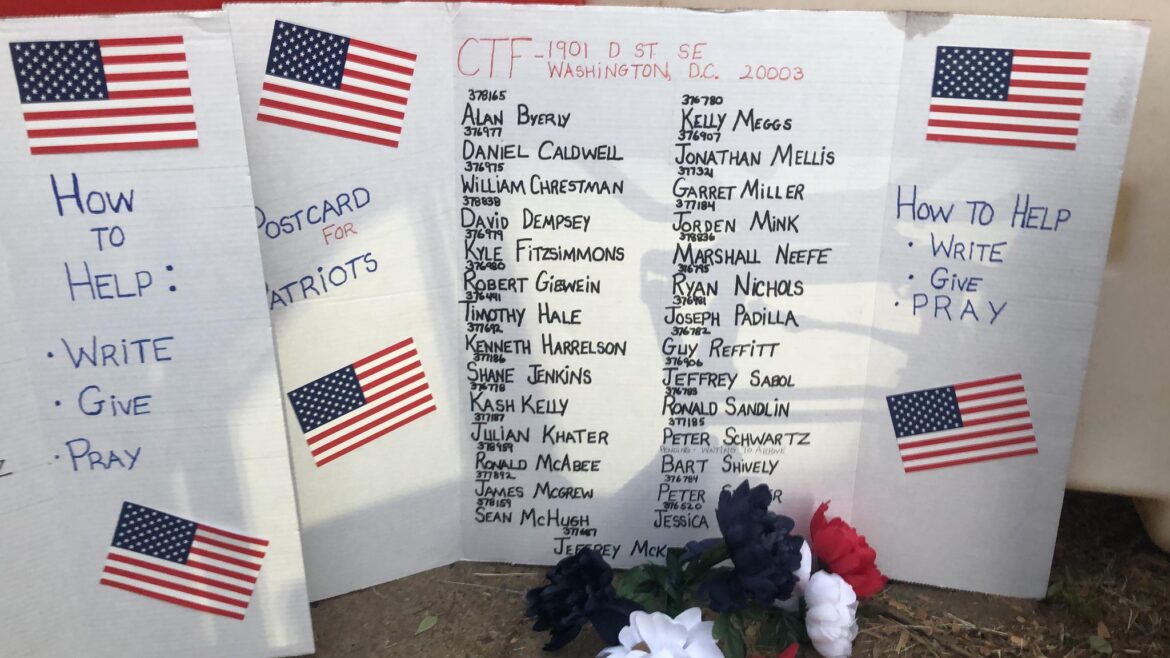 How
TO
HELP:
• WRITE
• GIVE
• PRAY
POSTCARD
FOR
PATRIOTS
CTF - 1901 D ST SE
WASHINGTON, D.C. 20003
378165
ALAN BYERLY
376977
DANIEL CALDWELL
376975
WILLIAM CHRESTMAN
378838
DAVID DEMPSEY
376979
KYLE FITZSIMMONS
376980
ROBERT GIEWEIN
376441
TIMOTHY HALE
377692
KENNETH HARRELSON
377186
SHANE JENKINS
376778
KASH KELLY
377187
JULIAN KHATER
378959
RONALD MCABEE
377892
JAMES MCGREW
378159
SEAN MCHUGH
JEFFREY MCK
376780
KELLY MEGGS
376907
JONATHAN MELLIS
377321
GARRET MILLER
377184
JORDEN MINK
378836
MARSHALL NEEFE
376795
RYAN NICHOLS
376981
JOSEPH PADILLA
376782
GUY REFFITT
376906
JEFFREY SABOL
376783
RONALD SANDLIN
377185
PETER SCHWARTZ
PENDING - WAITING TO ARRIVE
BART SHIVELY
376784
PETER
376520
JESSICA
HOW TO HELP
• WRITE
• GIVE
• PRAY